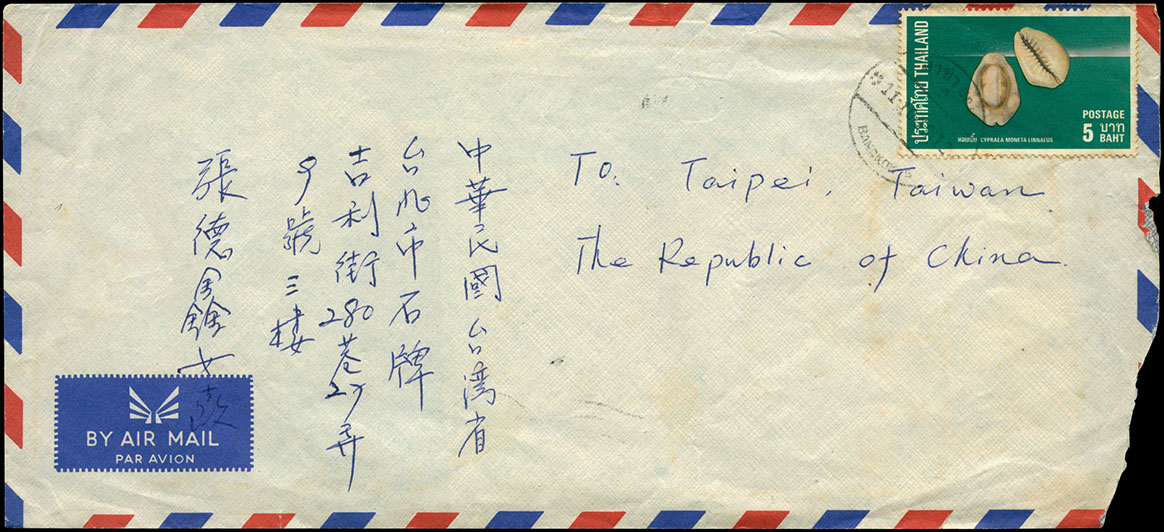 To. Taipei, Taiwan
The Republic of China.
中華民國台湾省
台北市石牌
吉利街280巷27弄
9號三樓
張德鑫女
啟
ประเทศไทย THAILAND
POSTAGE
5 บาท
BAHT
หอยเบี้ย CYPRAEA MONETA LINNAEUS
BANGKO
BY AIR MAIL
PAR AVION